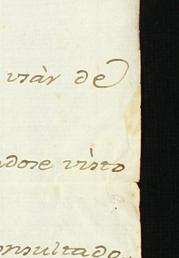 viàr de
ndose visto
onsultado